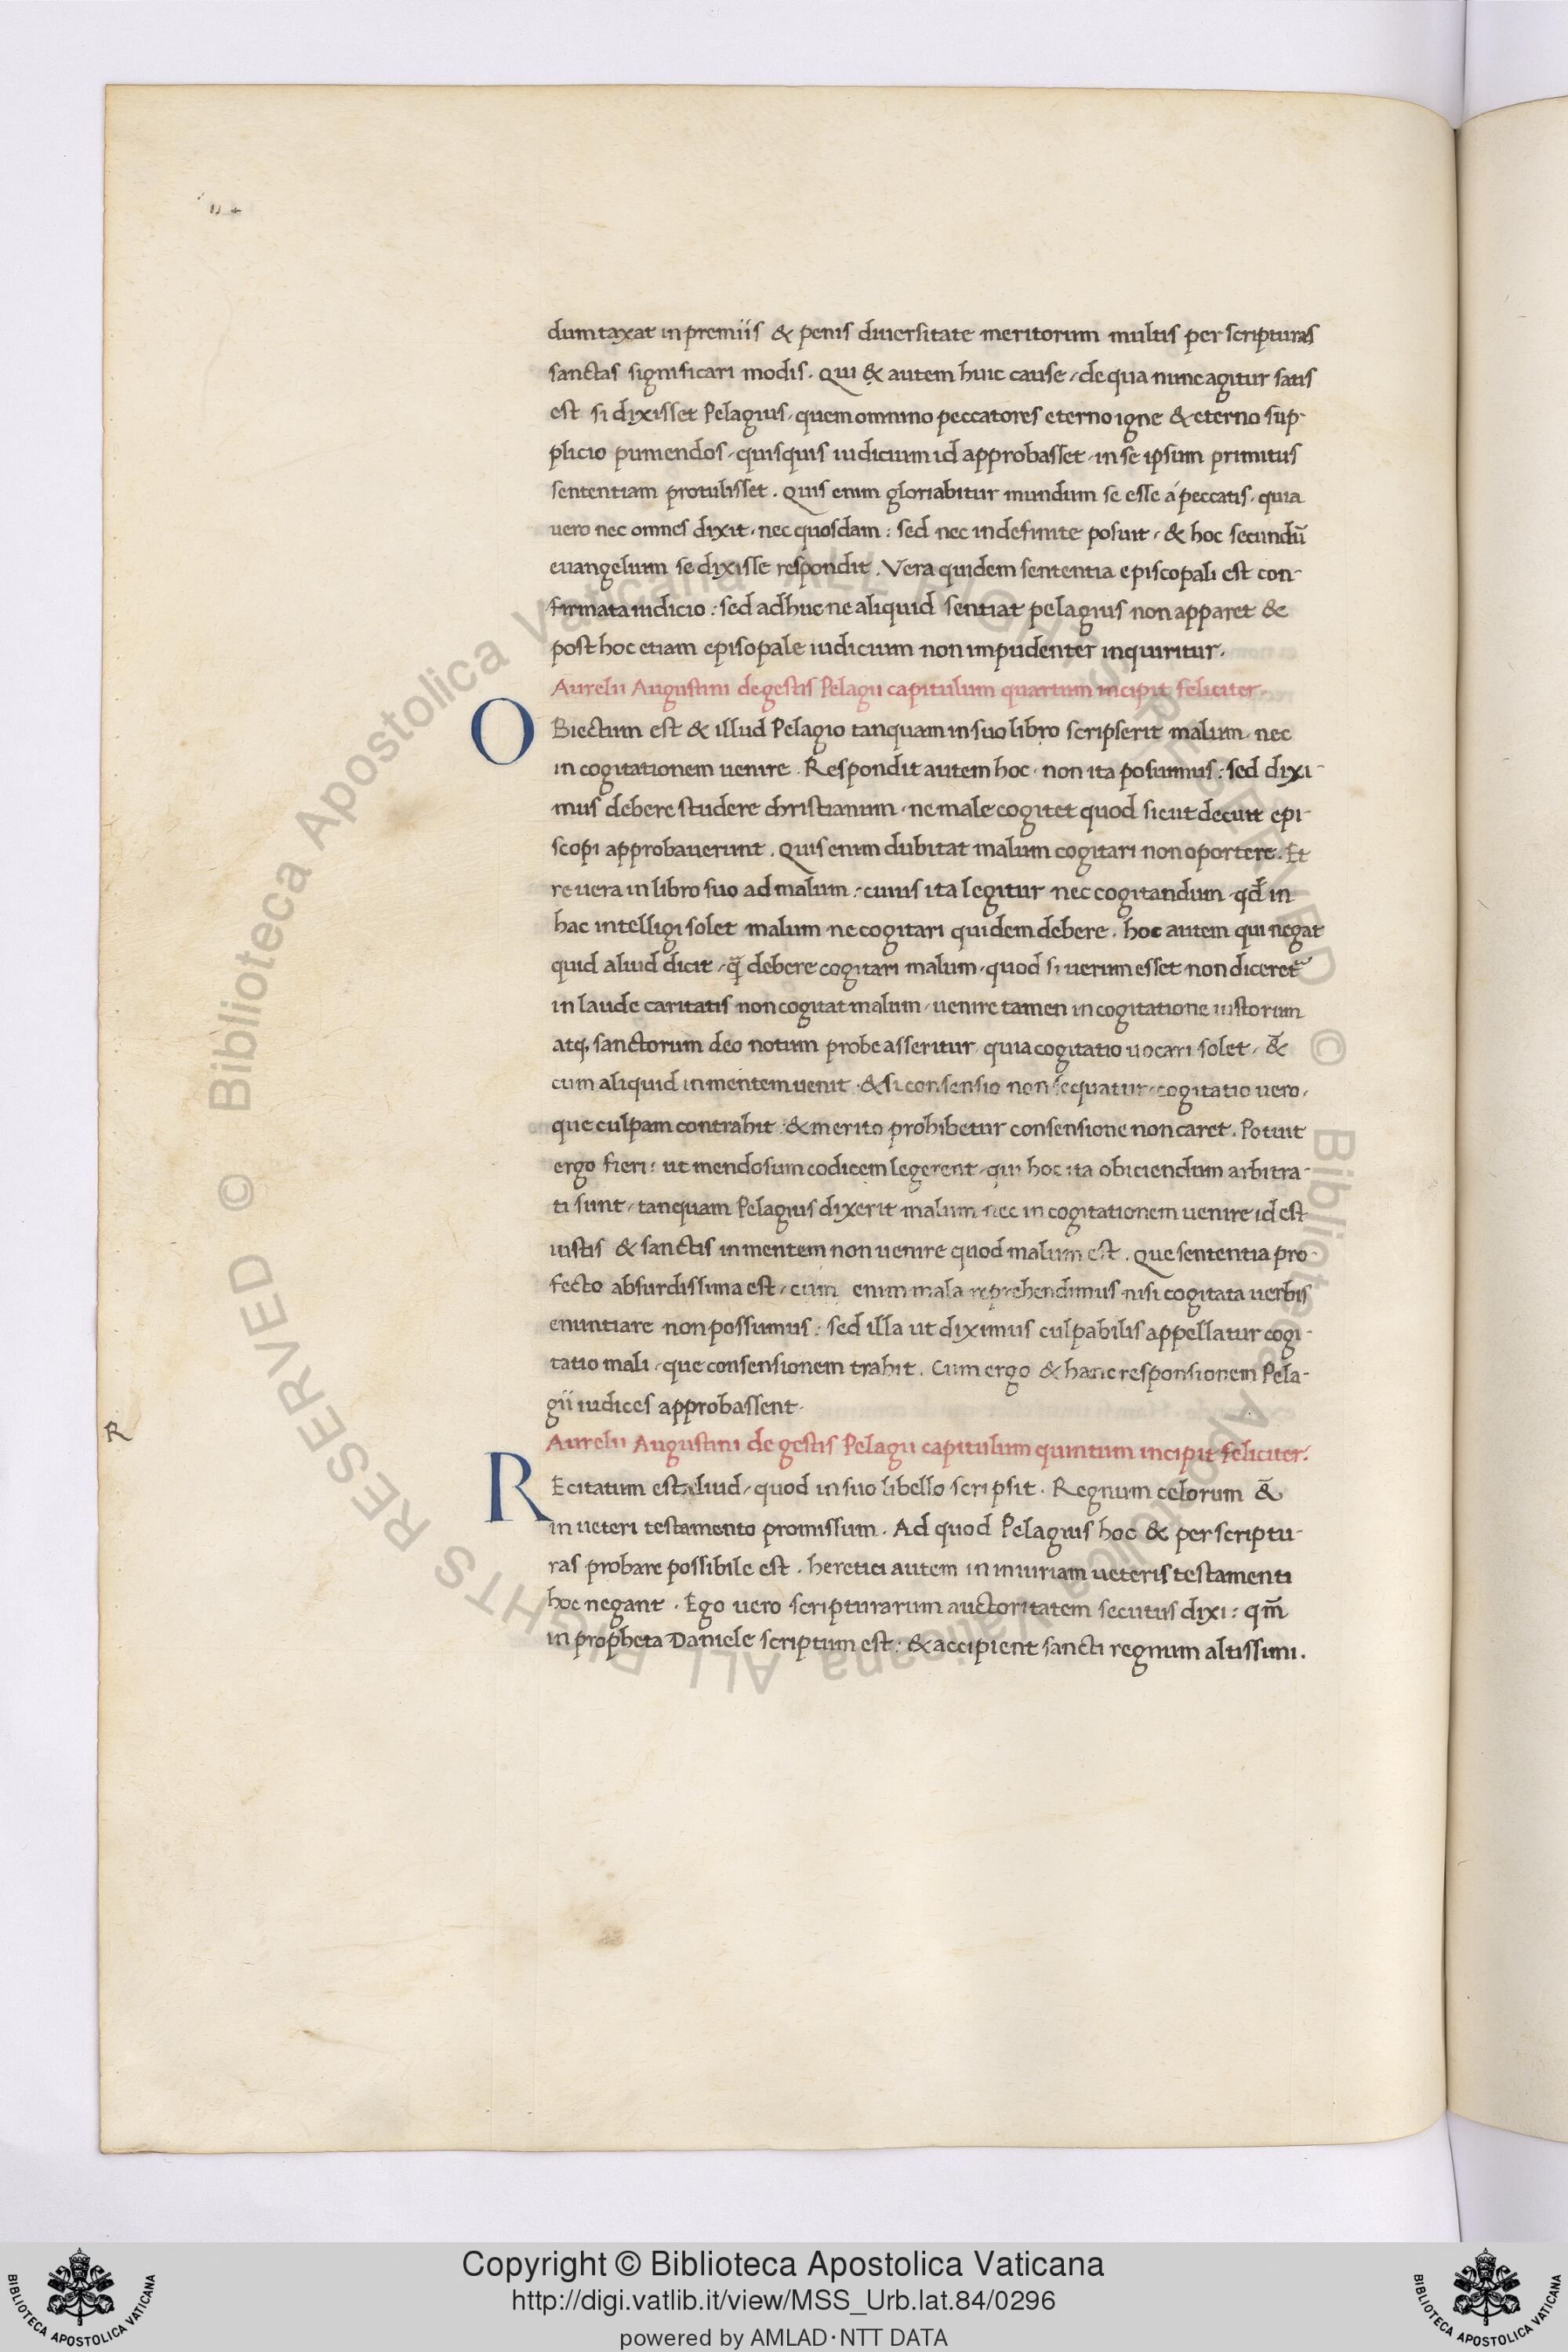 dumtaxat in premiis & penis diuersitate meritorum multis per scripturas
sanctas significari modis. Qui & autem huic cause, de qua nunc agitur satis
est si dixisset Pelagius, quem omnino peccatores eterno igne & eterno sup-
plicio puniendos, quisquis iudicium id approbasset, in se ipsum primitus
sententiam protulisset. Quis enim gloriabitur mundum se esse a peccatis, quia
uero nec omnes dixit, nec quosdam: sed nec indefinite posuit, & hoc secundũ
euangelium se dixisse respondit. Vera quidem sententia episcopali est con-
firmata iudicio: sed adhuc ne aliquid sentiat pelagius non apparet &
post hoc etiam episopale iudicium non impudenter inquiritur.
Aurelii Augustini de gestis Pelagii capitulum quartum incipit feliciter.
OBiectum est & illud Pelagio tanquam in suo libro scripserit malum, nec
in cogitationem uenire. Respondit autem hoc, non ita posuimus: sed dixi-
mus debere studere christianum, ne male cogitet quod sicut decuit epi-
scopi approbauerunt. Quis enim dubitat malum cogitari non oportere. Et
re uera in libro suo ad malum: cuius ita legitur nec cogitandum, qd̃ in
hac intelligi solet malum ne cogitari quidem debere. hoc autem qui negat
quid aliud dicit, q̃ debere cogitari malum, quod si uerum esset non diceret̃
in laude caritatis non cogitat malum, uenire tamen in cogitatione iustorum
atq, sanctorum deo notum probe asseritur, quia cogitatio uocari solet, &̃
cum aliquid in mentem uenit, & si consensio non sequatur, cogitatio uero,
que culpam contrahit: & merito prohibetur consensione non caret. Potuit
ergo fieri: ut mendosum codicem legerent, qui hoc ita obiciendum arbitra-
ti sunt, tanquam Pelagius dixerit malum nec in cogitationem uenire id est
iustis & sanctis in mentem non uenire quod malum est. Que sententia pro-
fecto absurdissima est, cum enim mala reprehendimus nisi cogitata uerbis
enuntiare non possumus: sed illa ut diximus culpabilis appellatur cogi-
tatio mali, que consensionem trahit. Cum ergo & hanc responsionem Pela-
gii iudices approbassent.
R
Aurelii Augustini de gestis Pelagii capitulum quintum incipit feliciter.
REcitatum est aliud, quod in suo libello scripsit. Regnum celorum &̃
in ueteri testamento promissum. Ad quod Pelagius hoc & per scriptu-
ras probare possibile est. heretici autem in iniuriam ueteris testamenti
hoc negant. Ego uero scripturarum auctoritatem secutus dixi: qm̃
in propheta Daniele scriptum est: & accipient sancti regnum altissimi.
Copyright © Biblioteca Apostolica Vaticana
http://digi.vatlib.it/view/MSS_Urb.lat.84/0296
powered by AMLAD·NTT DATA
BIBLIOTECA APOSTOLICA VATICANA
BIBLIOTECA APOSTOLICA VATICANA
© Biblioteca Apostolica Vaticana ALL RIGHTS RESERVED © Biblioteca Apostolica Vaticana ALL RIGHTS RESERVED